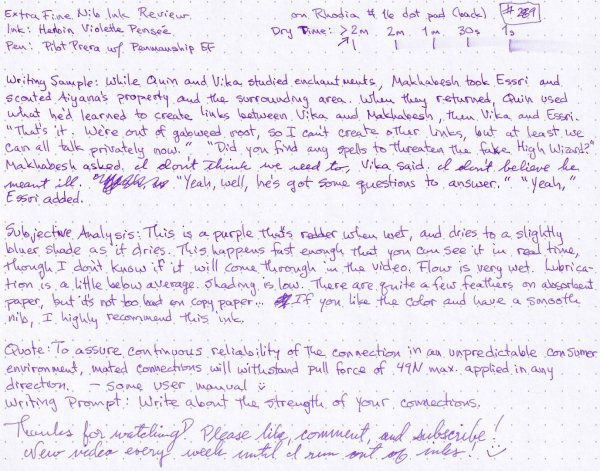 Extra Fine Nib Ink Review
on Rhodia #16 dot pad (back)
#289
Ink: Herbin Violette Pensée
Dry Time: >2m 2m 1m 30s 1s
Pen: Pilot Prera w/ Penmanship EF
Writing Sample: While Quin and Vika studied enchantments, Makhabesh took Essri and
scouted Aiyana's property and the surrounding area. When they returned, Quin used
what he'd learned to create links between Vika and Makhabesh, then Vika and Essri.
"That's it. We're out of gabweed root, so I can't create other links, but at least we
can all talk privately now." "Did you find any spells to threaten the fake High Wizard?"
Makhabesh asked. I don't think we need to, Vika said. I don't believe he
meant ill. "Yeah, well, he's got some questions to answer." "Yeah,"
Essri added.
Subjective Analysis: This is a purple that's redder when wet, and dries to a slightly
bluer shade as it dries. This happens fast enough that you can see it in real time,
though I don't know if it will come through in the video. Flow is very wet. Lubrica-
tion is a little below average. Shading is low. There are quite a few feathers on absorbent
paper, but it's not too bad on copy paper... If you like the color and have a smooth
nib, I highly recommend this ink.
Quote: To assure continuous reliability of the connection in an unpredictable consumer
environment, mated connections will withstand pull force of 49N max. applied in any
direction. – some user manual :)
Writing Prompt: Write about the strength of your connections.
Thanks for watching! Please like, comment, and subscribe!
New video every week until I run out of inks! :)